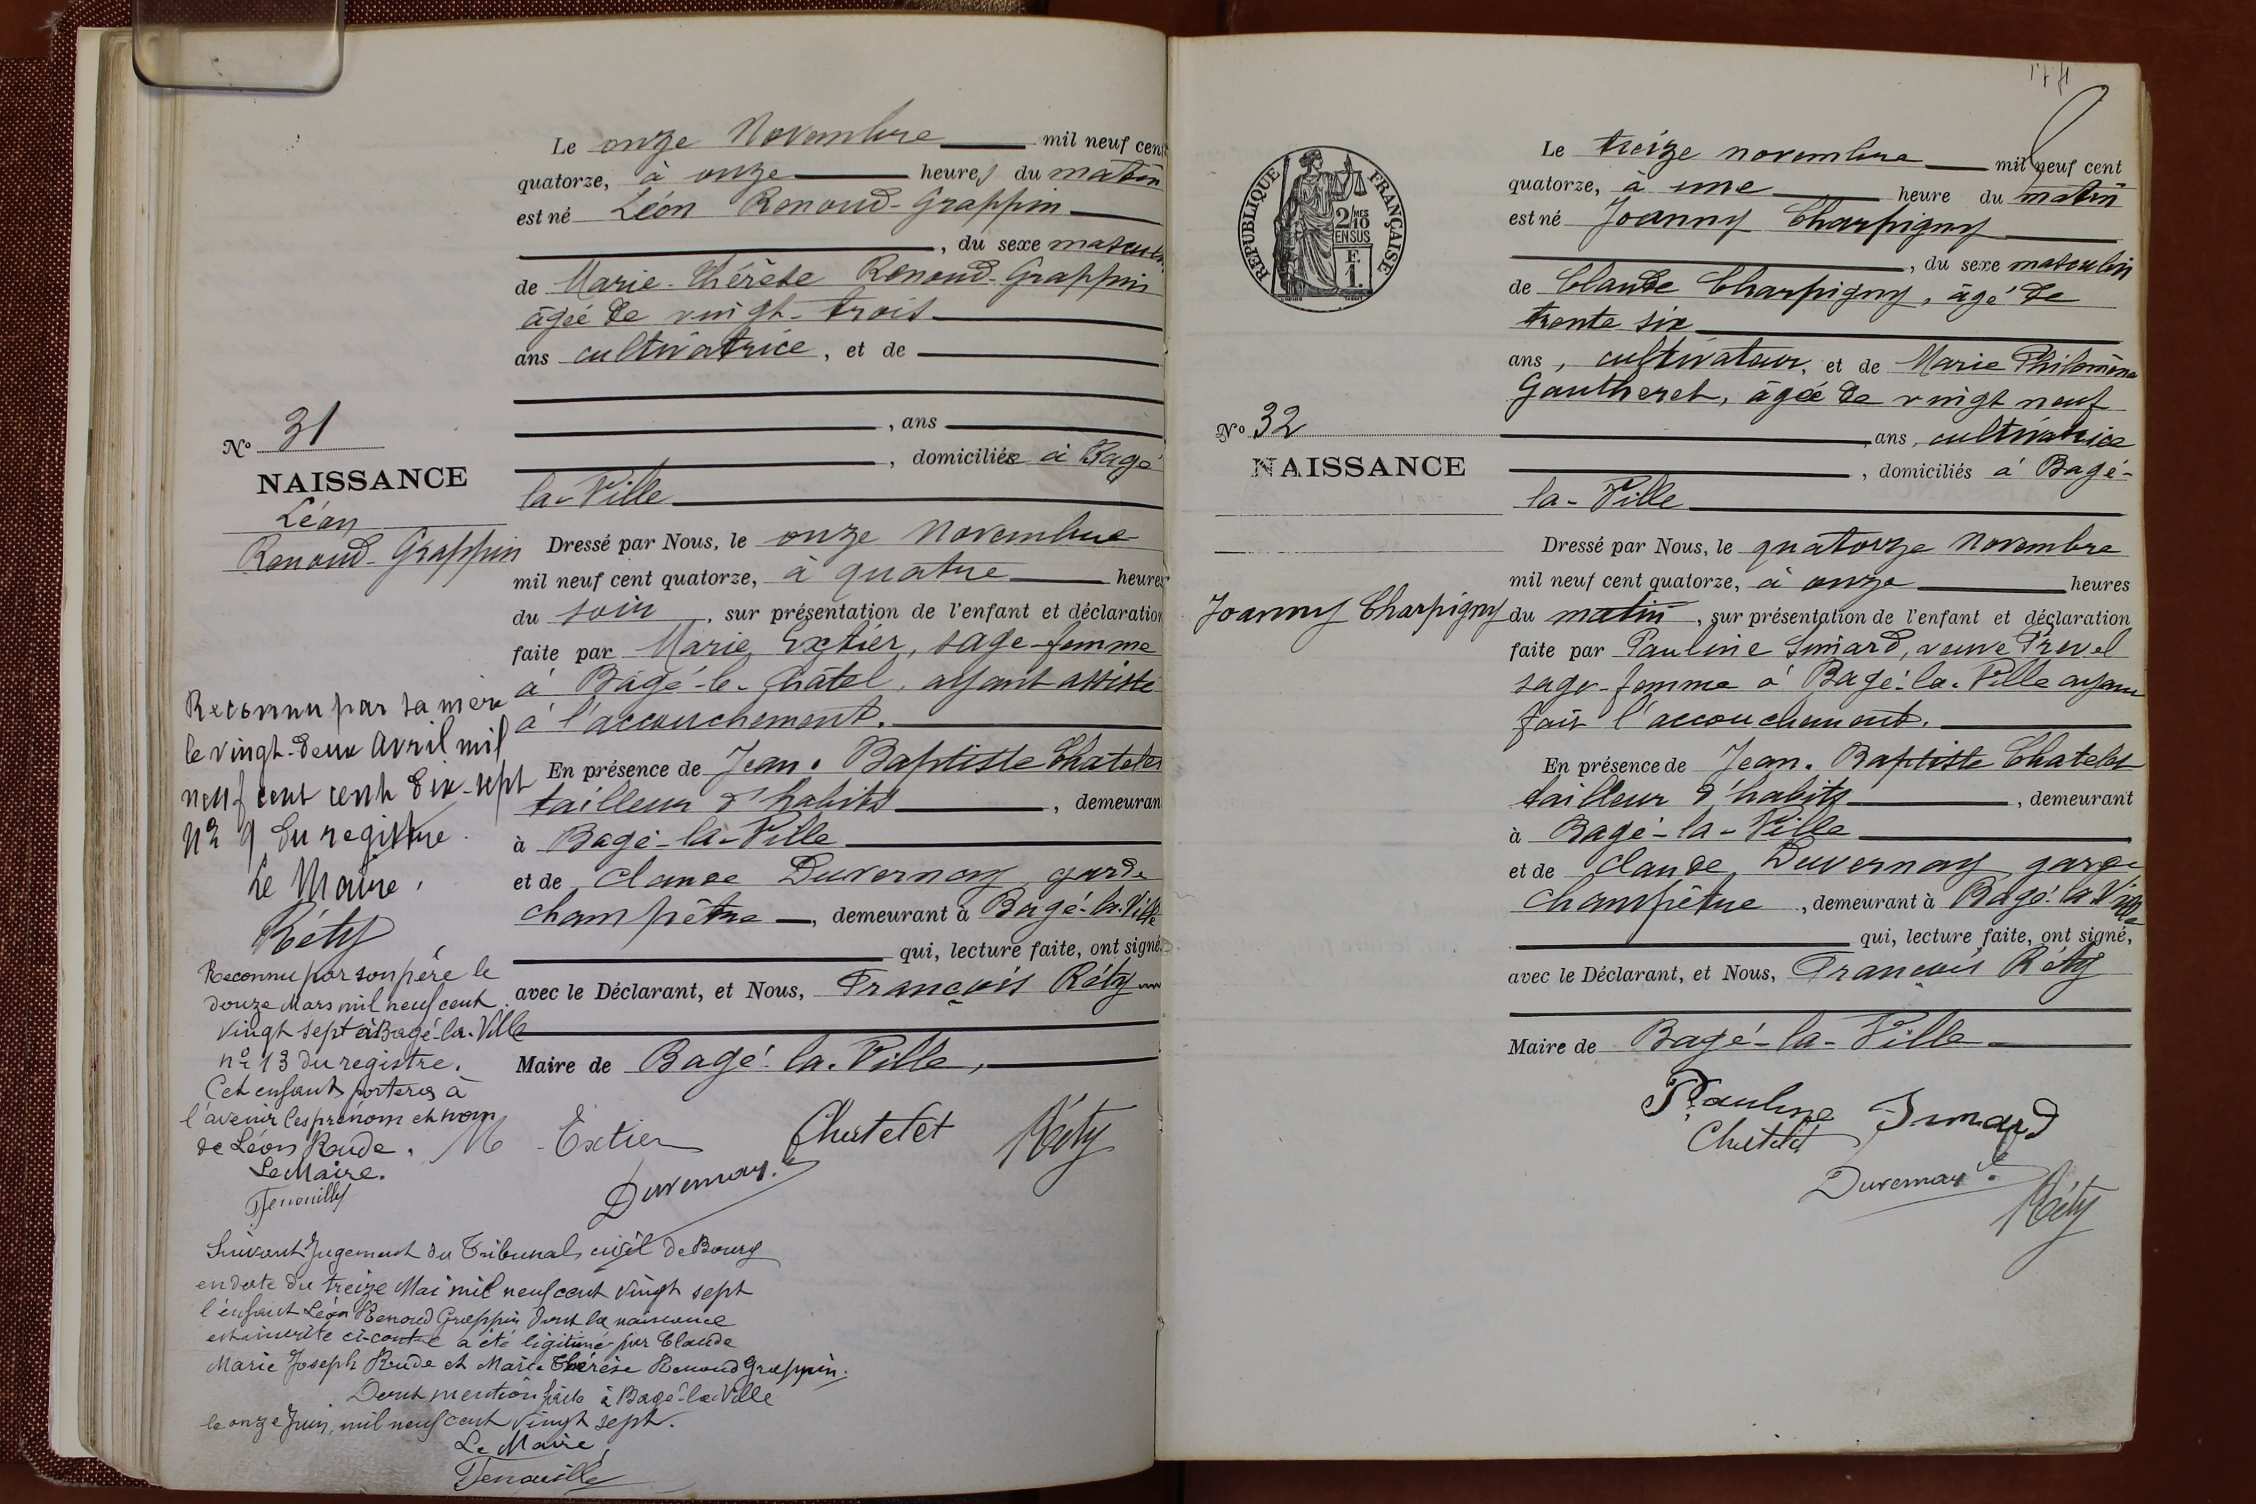 Le onze Novembre mil neuf cent
quatorze, à onze heures du matin
est né Léon Renoud-Grappin
, du sexe masculin
de Marie-Thérèse Renoud-Grappin
âgée de vingt-trois
ans cultivatrice, et de
, ans
, domiciliée à Bagé
la-Ville
Nº 31
NAISSANCE
Léon
Renoud-Grappin
Dressé par Nous, le onze Novembre
mil neuf cent quatorze, à quatre heures
du soir, sur présentation de l'enfant et déclaration
faite par Marie Extier, sage-femme
à Bagé-le-Châtel, ayant assisté
à l'accouchement.
En présence de Jean-Baptiste Chatelet
tailleur d'habits, demeurant
à Bagé-la-Ville
et de Claude Duvernay garde
champêtre, demeurant à Bagé-la-Ville
qui, lecture faite, ont signé
avec le Déclarant, et Nous, François Réty
Maire de Bagé-la-Ville,
M Extier Chatelet Réty
Duvernay
Reconnu par sa mère
le vingt-deux avril mil
neuf cent cent dix-sept
Nº 9 du registre.
Le Maire,
Réty
Reconnu par son père le
douze Mars mil neuf cent
vingt sept à Bagé-la-Ville
nº 13 du registre.
Cet enfant portera à
l'avenir les prénom et nom
de Léon Rude.
Le Maire.
Suivant Jugement du Tribunal civil de Bourg
en date du treize Mai mil neuf cent vingt sept
l'enfant Léon Renoud Grappin dont la naissance
est inscrite ci-contre a été légitimé par Claude
Marie Joseph Rude et Marie Thérèse Renoud Grappin.
Dont mention faite à Bagé-la-Ville
le onze Juin mil neuf cent vingt sept.
Le Maire,
RÉPUBLIQUE FRANÇAISE
2/10 MES
EN SUS
F.
1.
Le treize novembre mil neuf cent
quatorze, à une heure du matin
est né Joanny Charpigny
, du sexe masculin
de Claude Charpigny, âgé de
trente six
ans, cultivateur, et de Marie Philomène
Gautheret, âgée de vingt neuf
ans, cultivatrice
, domiciliés à Bagé-
la-Ville
Nº 32
NAISSANCE
Joanny Charpigny
Dressé par Nous, le quatorze Novembre
mil neuf cent quatorze, à onze heures
du matin, sur présentation de l'enfant et déclaration
faite par Pauline veuve
sage-femme à Bagé-la-Ville ayant
fait l'accouchement.
En présence de Jean-Baptiste Chatelet
tailleur d'habits, demeurant
à Bagé-la-Ville
et de Claude Duvernay garde
champêtre, demeurant à Bagé-la-Ville
qui, lecture faite, ont signé,
avec le Déclarant, et Nous, François Réty
Maire de Bagé-la-Ville
Pauline
Chatelet
Duvernay
Réty